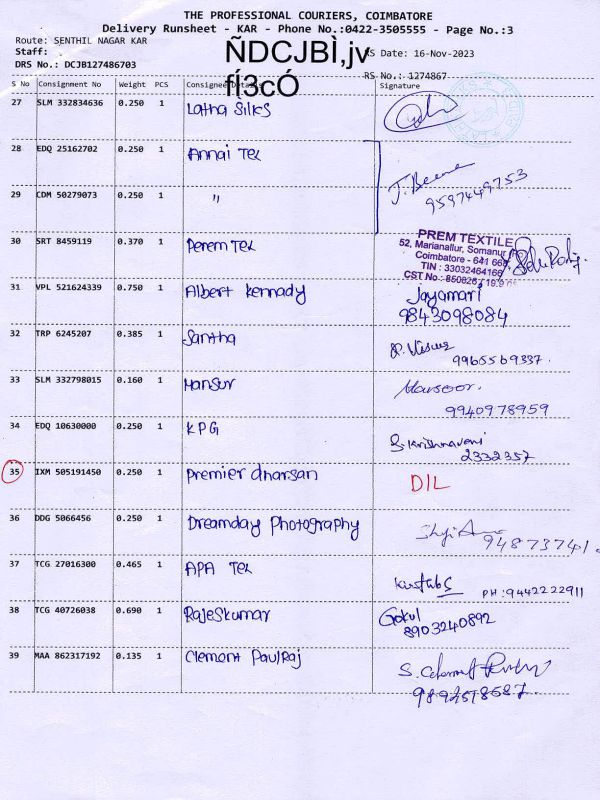 THE PROFESSIONAL COURIERS, COIMBATORE
Delivery Runsheet - KAR - Phone No.:0422-3505555 - Page No.:3
Route: SENTHIL NAGAR KAR
Staff: .
ÑDCJBÌ,jv
S Date: 16-Nov-2023
DRS No.: DCJB127486703
fÍ3cÓ
RS No.: 1274867
S No Consignment No Weight PCS Consignee Details Signature
27 SLM 332834636 0.250 1 Latha Silks
28 EDQ 25162702 0.250 1 Annai Tex
J. Beena
9597449753
29 CDM 50279073 0.250 1 "
30 SRT 8459119 0.370 1 Perem Tex
PREM TEXTILE
52, Marianallur, Somanur
Coimbatore - 641 66
TIN : 33032464166
CST No.: 850626 / 19.9
31 VPL 521624339 0.750 1 Albert kennady Jayamari
9843098084
32 TRP 6245207 0.385 1 Santha
9965569337.
33 SLM 332798015 0.160 1 Mansur Mansoor.
9940978959
34 EDQ 10630000 0.250 1 KPG S. Krishnaveni
2332357
35 IXM 505191450 0.250 1 Premier dharsan DIL
36 DDG 5066456 0.250 1 Dreamday Photography
94873741
37 TCG 27016300 0.465 1 APA Tex
PH: 9442222911
38 TCG 40726038 0.690 1 Rajeskumar Gokul
8903240892
39 MAA 862317192 0.135 1 Clement Paulraj